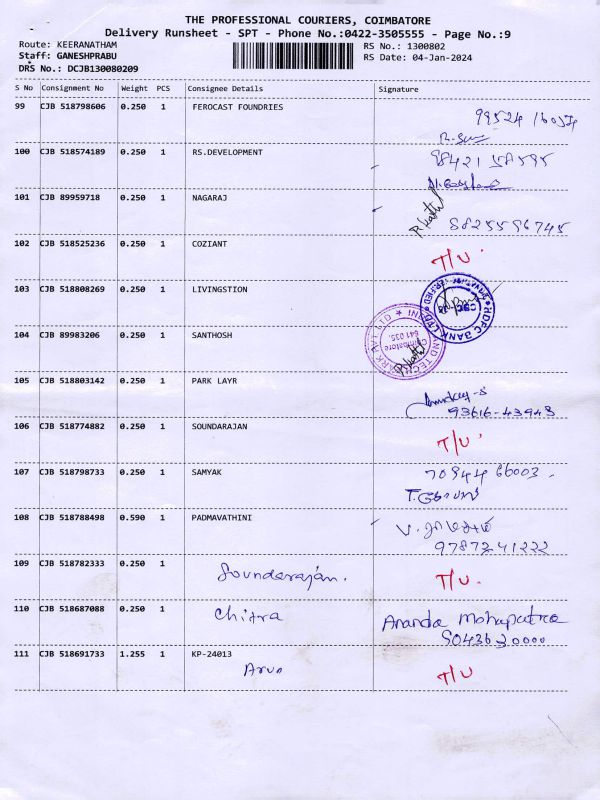 THE PROFESSIONAL COURIERS, COIMBATORE
Delivery Runsheet - SPT - Phone No.:0422-3505555 - Page No.:9
Route: KEERANATHAM
RS No.: 1300802
Staff: GANESHPRABU
RS Date: 04-Jan-2024
DRS No.: DCJB130080209
S No Consignment No Weight PCS Consignee Details Signature
99 CJB 518798606 0.250 1 FEROCAST FOUNDRIES
100 CJB 518574189 0.250 1 RS.DEVELOPMENT
98421 58595
101 CJB 89959718 0.250 1 NAGARAJ
8825596745
102 CJB 518525236 0.250 1 COZIANT
T/U
103 CJB 518808269 0.250 1 LIVINGSTION
HDFC BANK LTD
104 CJB 89983206 0.250 1 SANTHOSH
641 035
Coimbatore
105 CJB 518803142 0.250 1 PARK LAYR
93616-43943
106 CJB 518774882 0.250 1 SOUNDARAJAN
T/U
107 CJB 518798733 0.250 1 SAMYAK
70944 66003
108 CJB 518788498 0.590 1 PADMAVATHINI
9787241222
109 CJB 518782333 0.250 1 Sounderajan. T/U.
110 CJB 518687088 0.250 1 Chitra Ananda Mohapatra
9043630000
111 CJB 518691733 1.255 1 KP-24013
Arun T/U